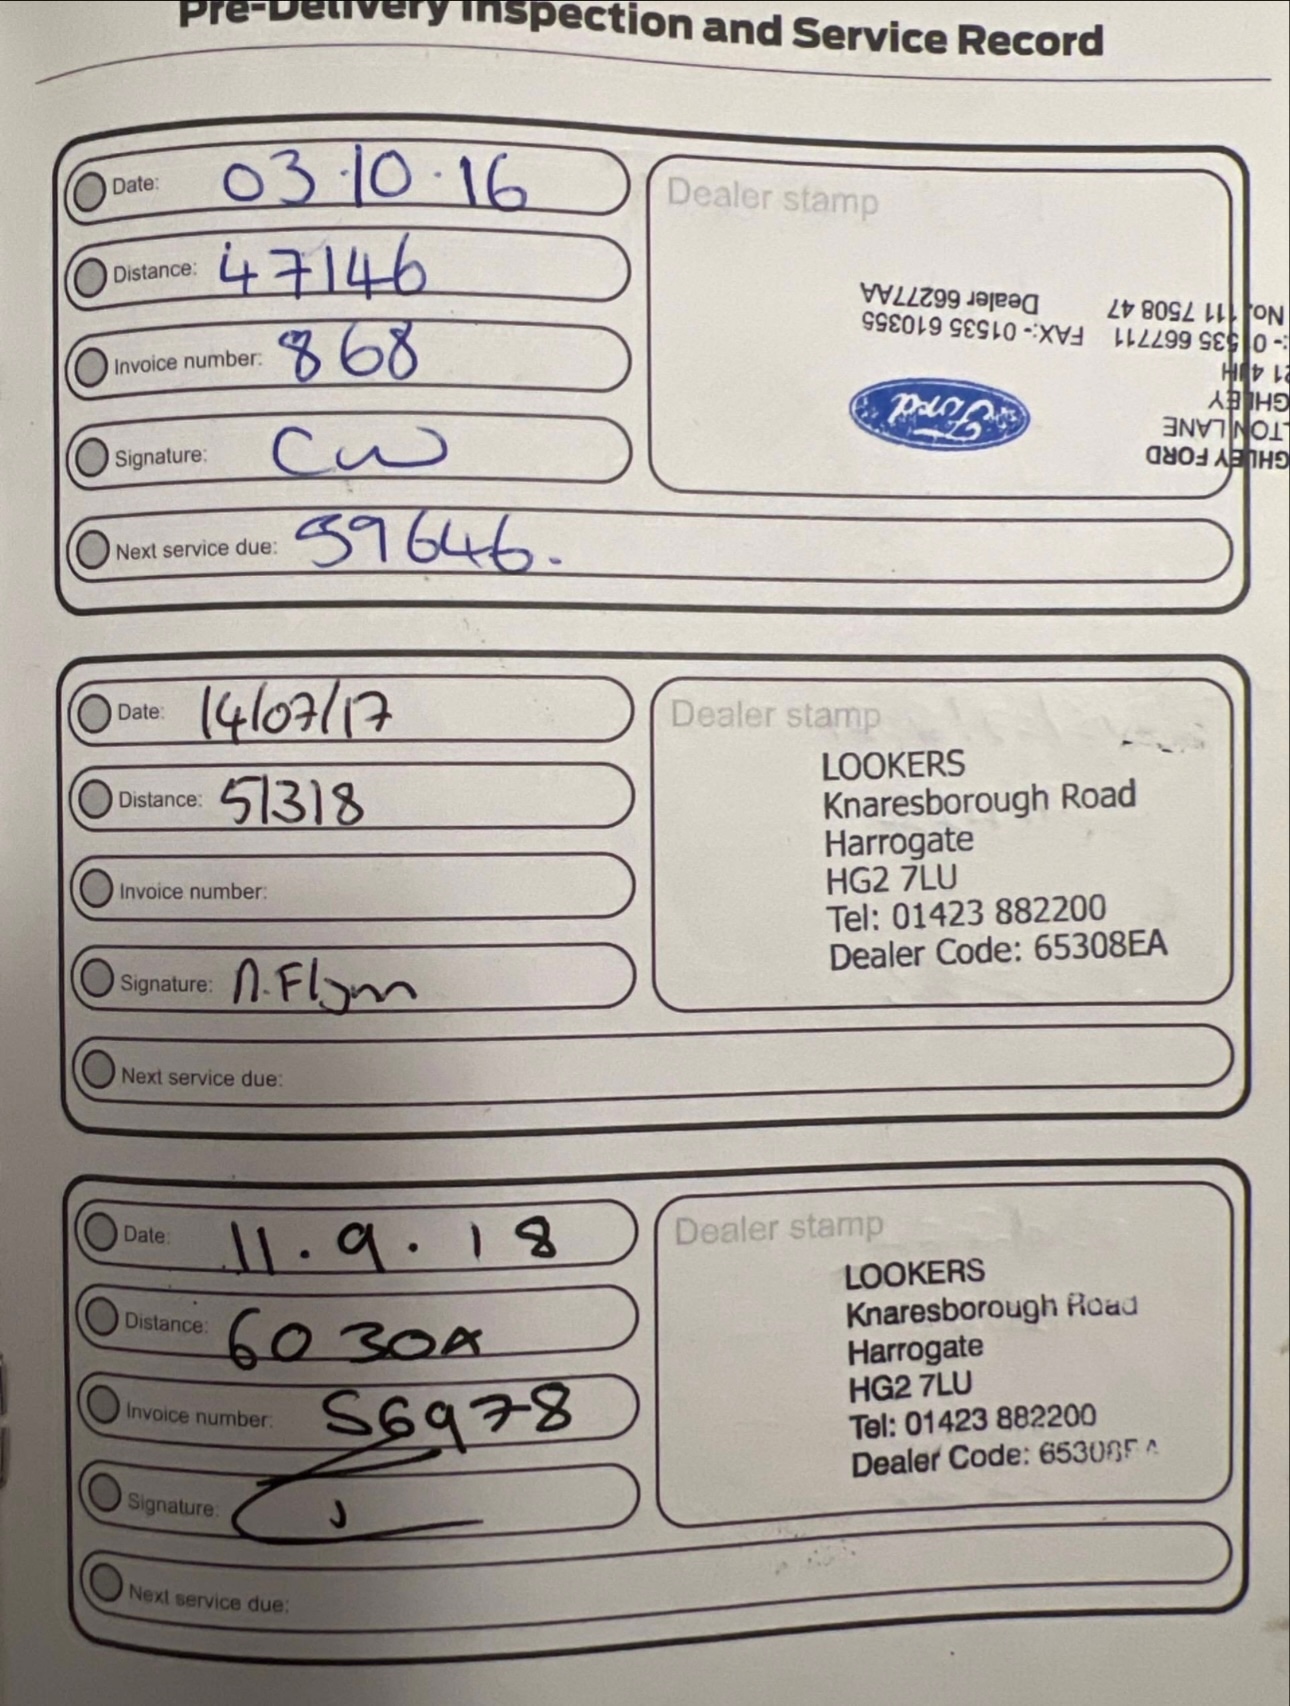 Pre-Delivery Inspection and Service Record
Date: 03.10.16
Distance: 47146
Invoice number: 868
Signature: CW
Next service due: 59646.
Dealer stamp
GHLEY FORD
TON LANE
GHLEY
21 4JH
:- 01535 667711 FAX:- 01535 610355
No. 111 7508 47 Dealer 66277AA
Ford
Date: 14/07/17
Distance: 51318
Invoice number:
Signature: N.Flynn
Next service due:
Dealer stamp
LOOKERS
Knaresborough Road
Harrogate
HG2 7LU
Tel: 01423 882200
Dealer Code: 65308EA
Date: 11.9.18
Distance:
Invoice number: 56978
Signature:
Next service due:
Dealer stamp
LOOKERS
Knaresborough Road
Harrogate
HG2 7LU
Tel: 01423 882200
Dealer Code: 65308EA